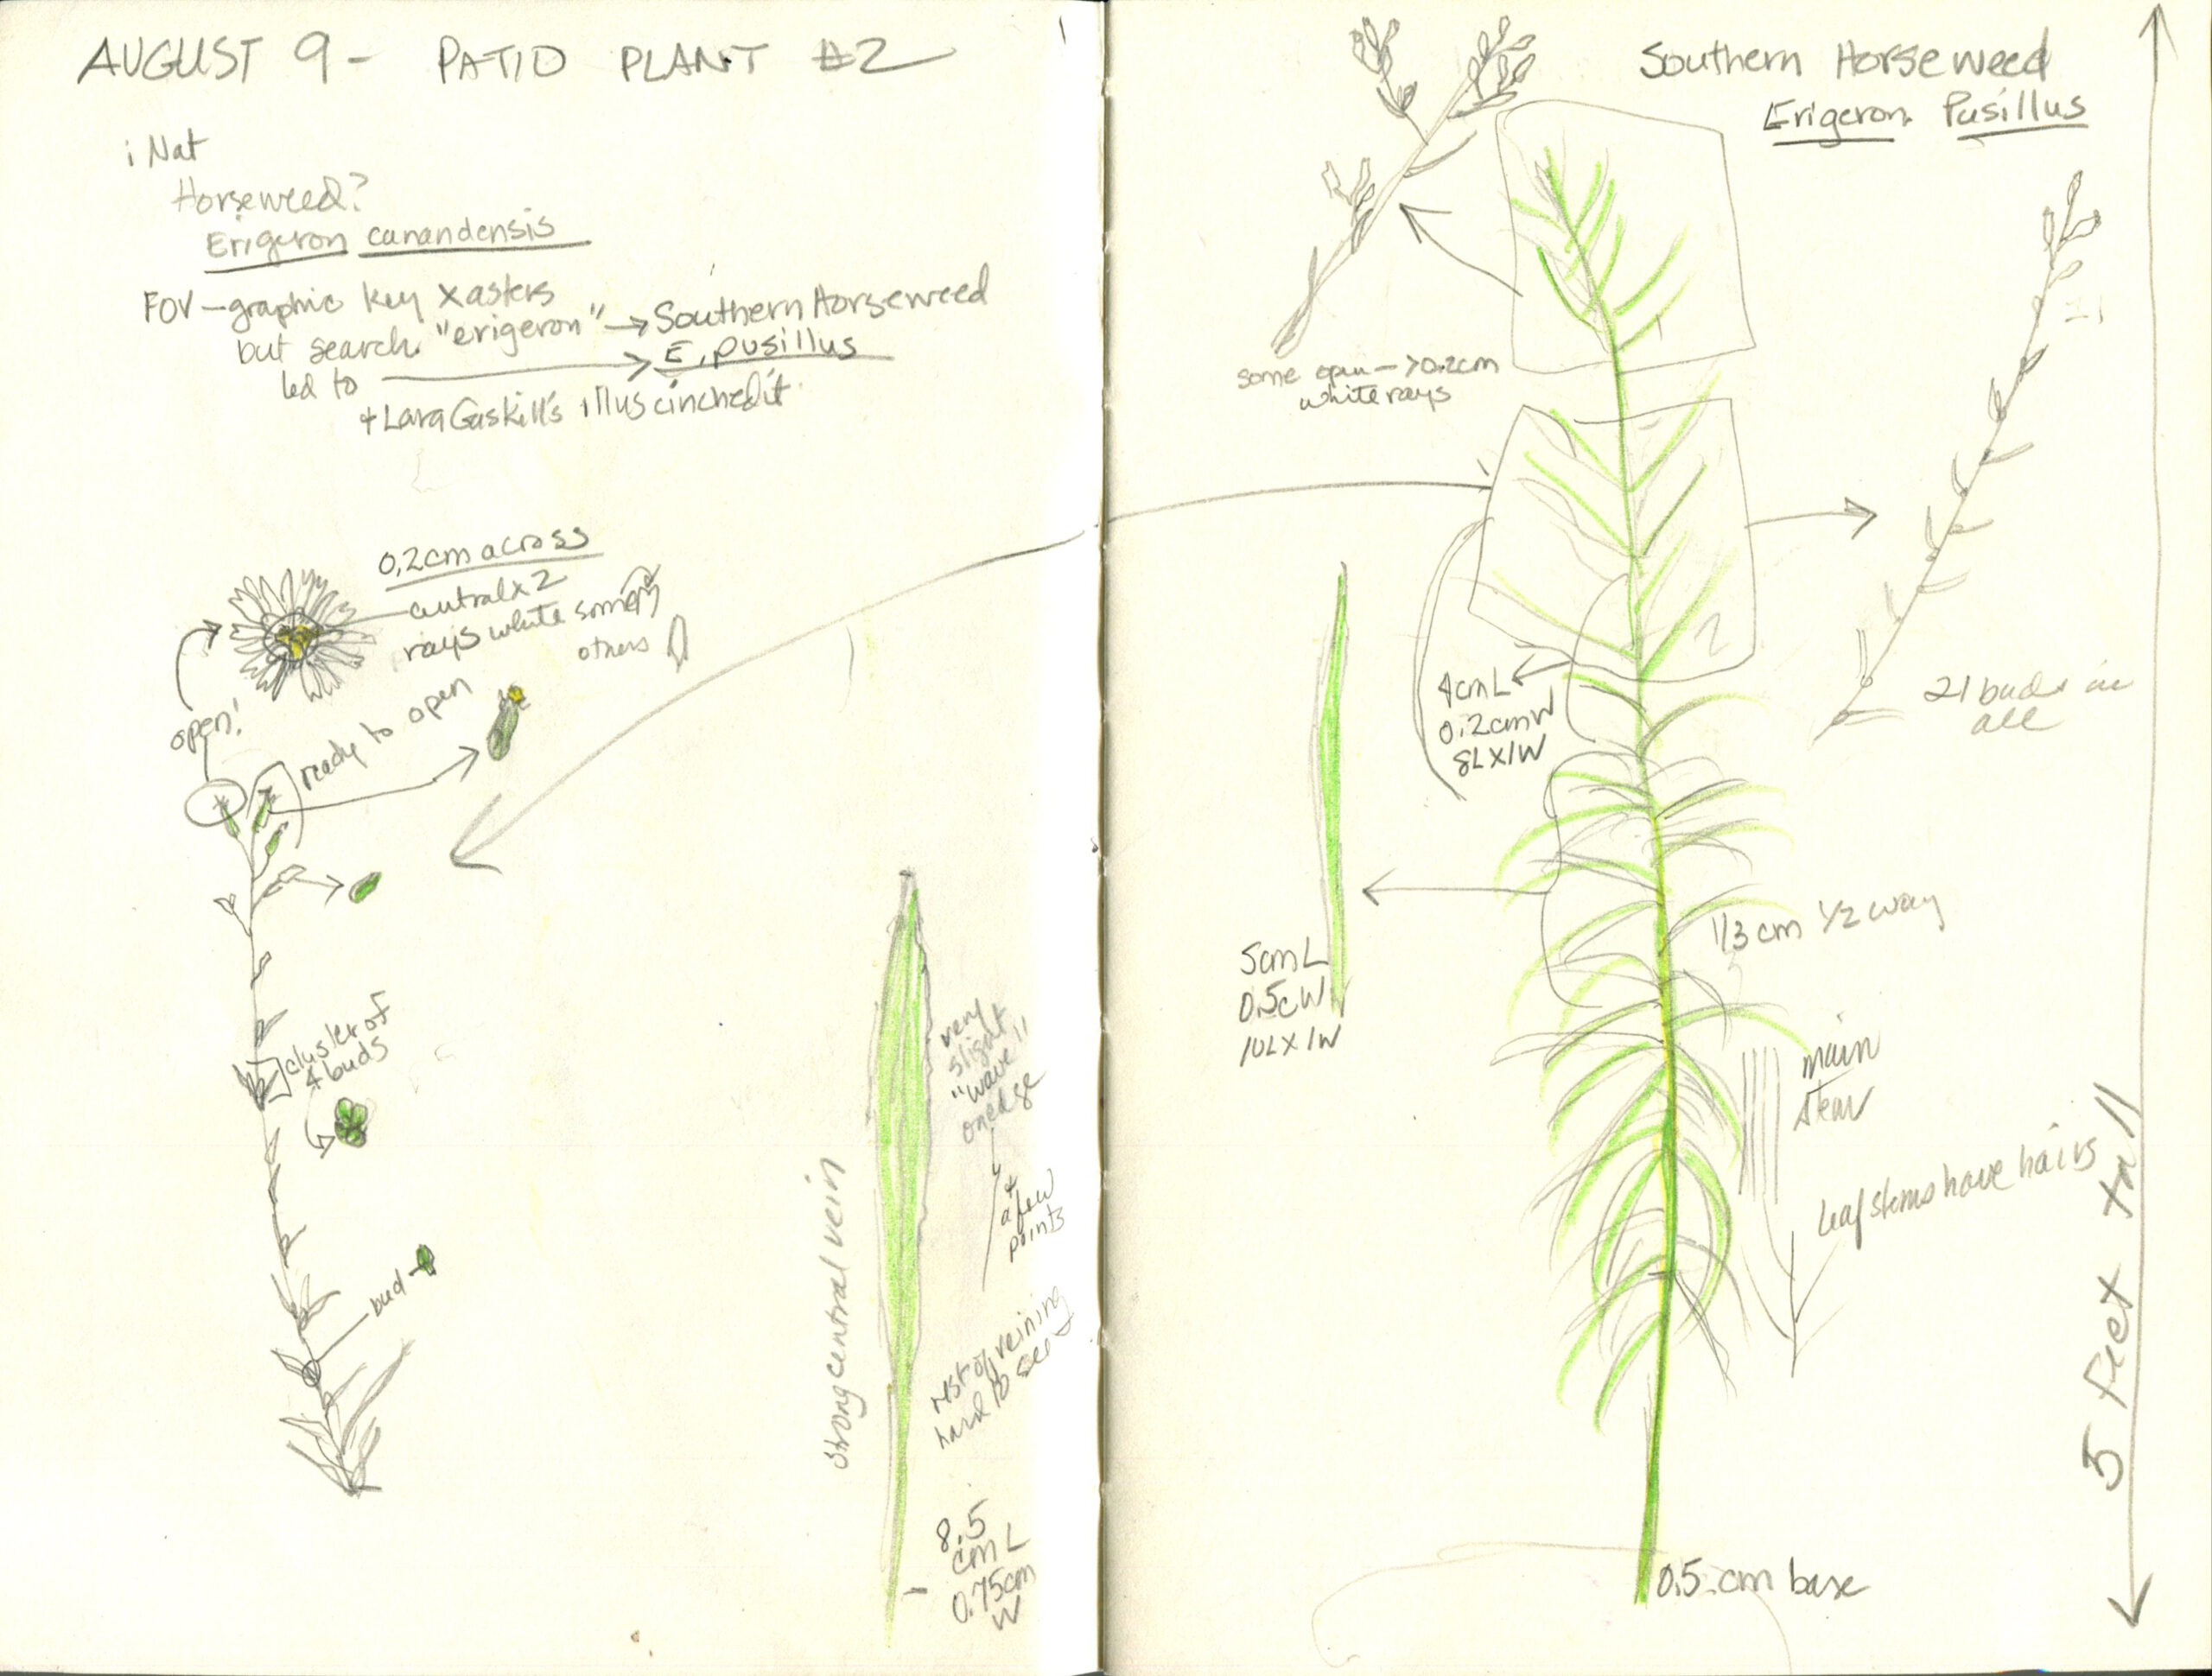 AUGUST 9 - PATIO PLANT #2
iNat
Horseweed?
Erigeron canandensis
FOV - graphic key x asters
but search "erigeron" → Southern Horseweed
led to → E. pusillus
+ Lara Gaskill's illus cinched it
0.2cm across
central x 2
rays white some
others
open!
ready to open
cluster of
4 buds
bud
strong central vein
very
slight
"wave"
on edge
+
a few
points
rest of veining
hard to see
8.5
cm L
0.75cm
W
Southern Horseweed
Erigeron Pusillus
some open - >0.2cm
white rays
4cm L
0.2cm W
8L X 1W
21 buds in
all
5cm L
0.5c W
10L X 1W
1/3 cm 1/2 way
main
stem
leaf stems have hairs
5 feet tall
0.5 cm base